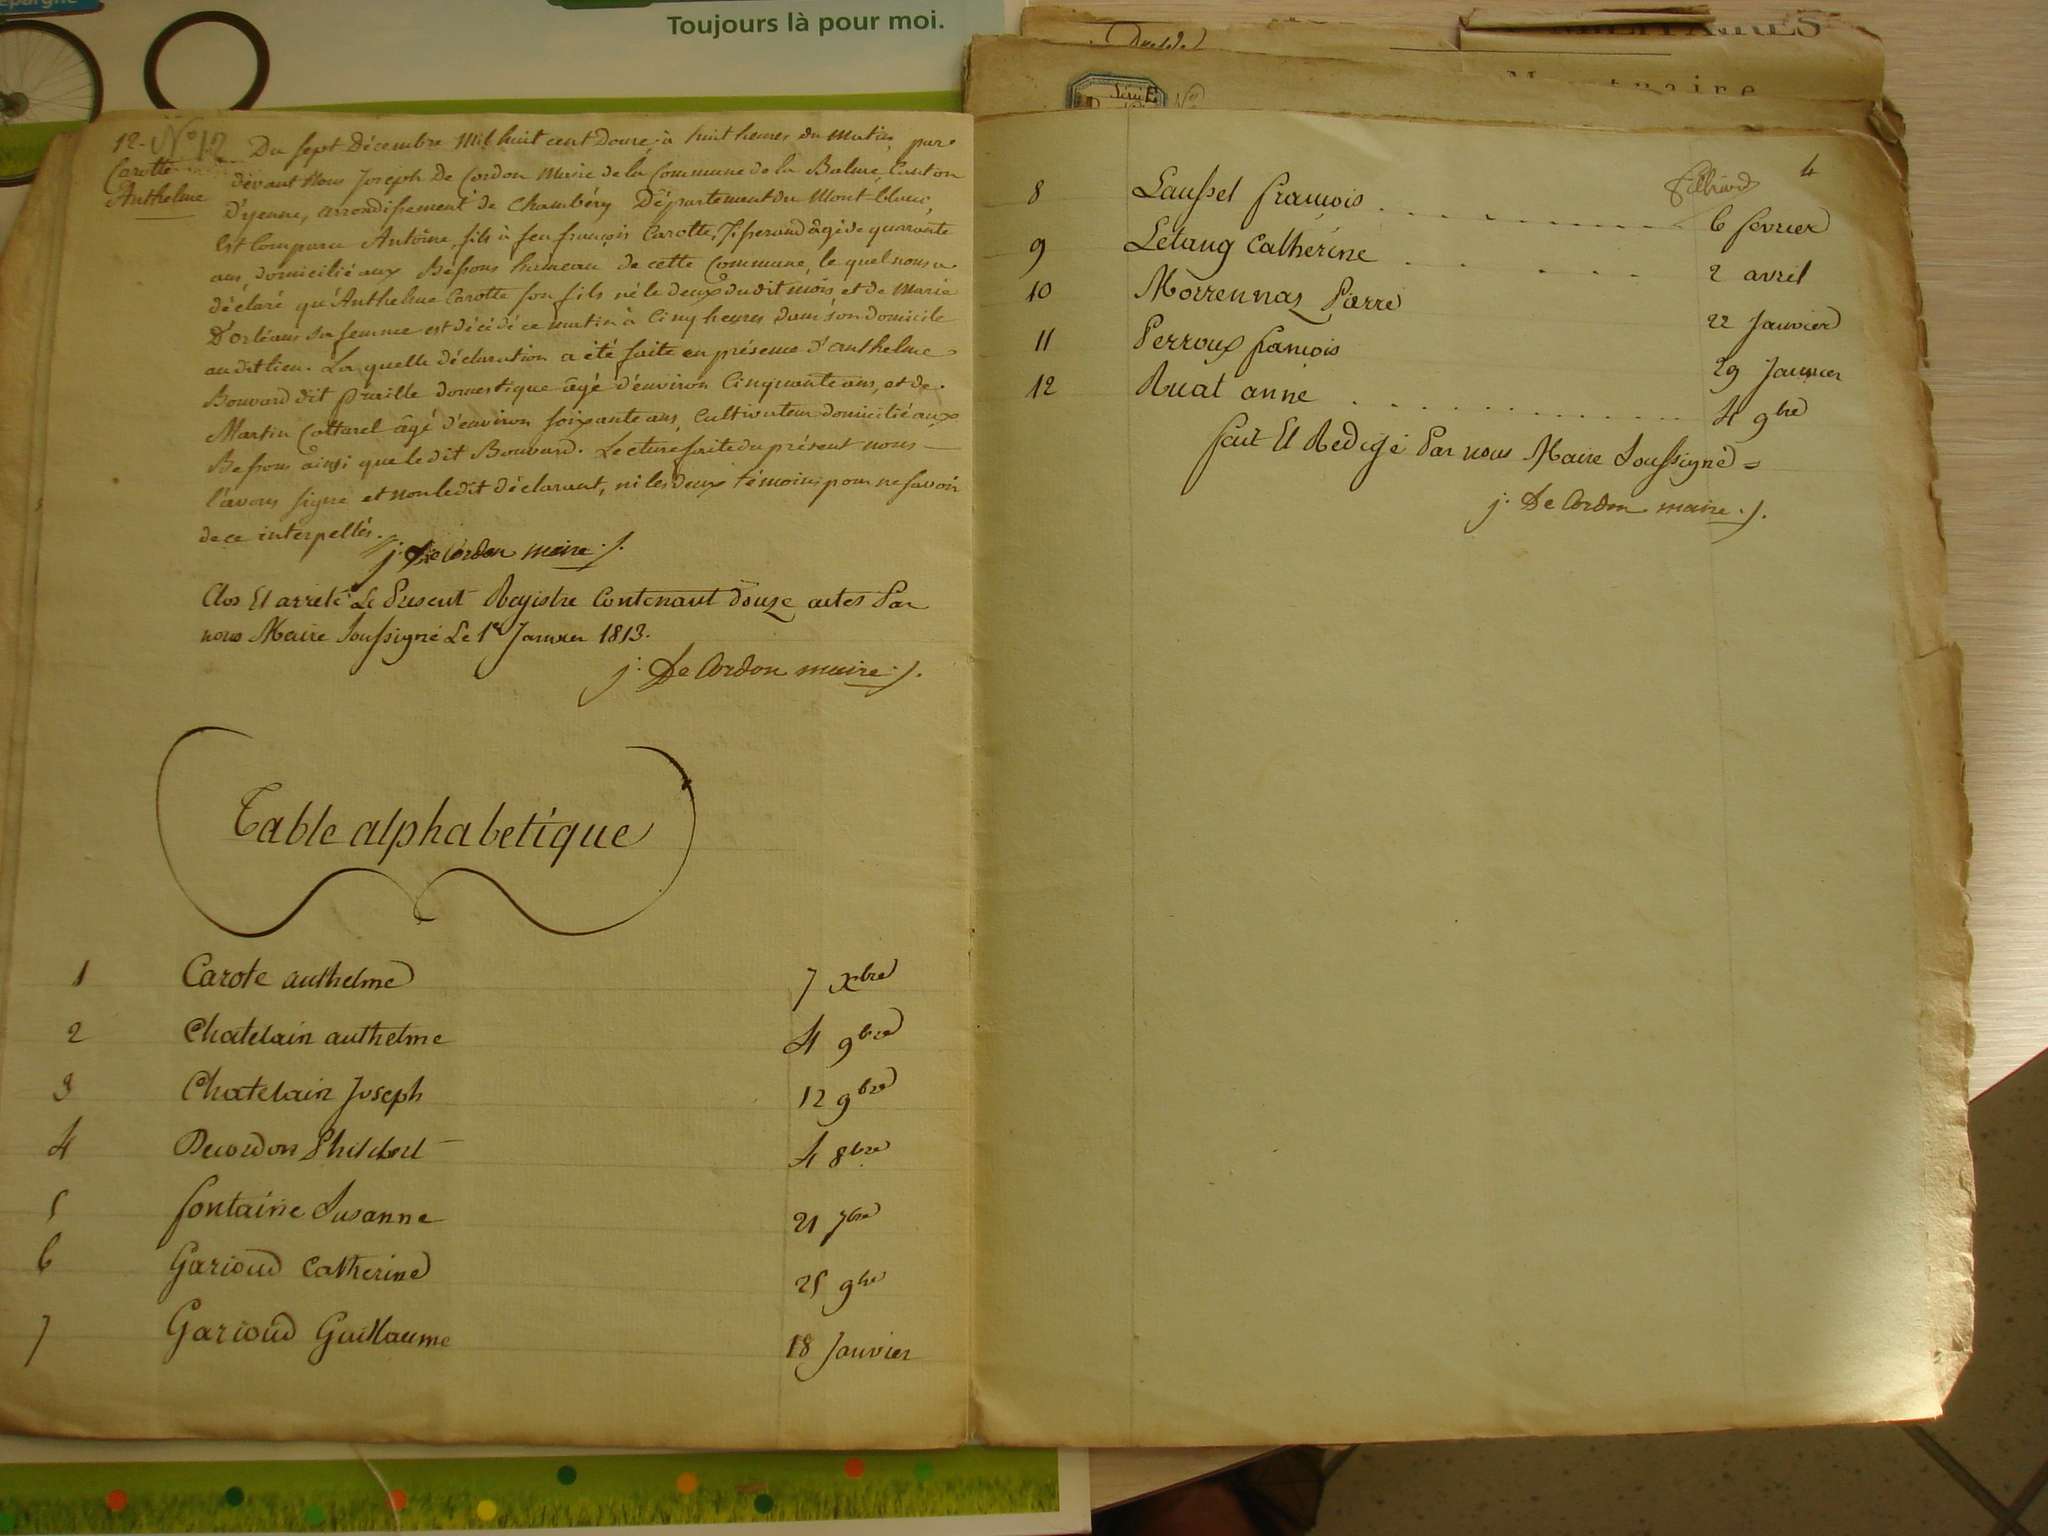 Epargne
Toujours là pour moi.
12. N° 12
Carotte
Anthelme
Du sept Décembre Mil huit cent Douze, à huit heures du Matin, par
devant Nous Joseph De Cordon Maire de la Commune de la Balme, Canton
d'yenne, arrondissement de Chambéry Département du Mont-blanc,
Est Comparu Antoine, fils à feu françois Carotte, Tisserand âgé de quarante
ans, domicilié aux Bessons hameau de cette Commune, le quel nous a
déclaré qu'Anthelme Carotte son fils né le deux du dit mois, et de Marie
D'orléans sa femme est décédé ce matin à Cinq heures dans son domicile
au dit lieu. La quelle déclaration a été faite en présence d'anthelme
Bouvard dit praille domestique âgé d'environ Cinquante ans, et de
Martin Cottarel âgé d'environ soixante ans, Cultivateur domicilié aux
Bessons ainsi que le dit Bouvard. Lecture faite du présent nous
l'avons signé et non le dit déclarant, ni les deux témoins pour ne savoir
de ce interpellés.
j. De Cordon maire
Clos Et arreté Le Present Registre Contenant douze actes Par
nous Maire Soussigné Le 1er Janvier 1813.
j. De Cordon maire
Table alphabetique
1 Carote anthelme 7 Xbre
2 Chatelain anthelme 4 9bre
3 Chatelain Joseph 12 9bre
4 Decordon Philibert 4 8bre
5 fontaine Susanne 21 7bre
6 Garioud Catherine 25 9bre
7 Garioud Guillaume 18 Janvier
Série E
N°
4
8 Laussel françois 6 fevrier
9 Letang Catherine 2 avril
10 Morrennas Pierre 22 Janvier
11 Perroux francois 29 Janvier
12 Ruat anne 4 9bre
fait Et Redigé Par nous Maire Soussigné =
j. De Cordon maire